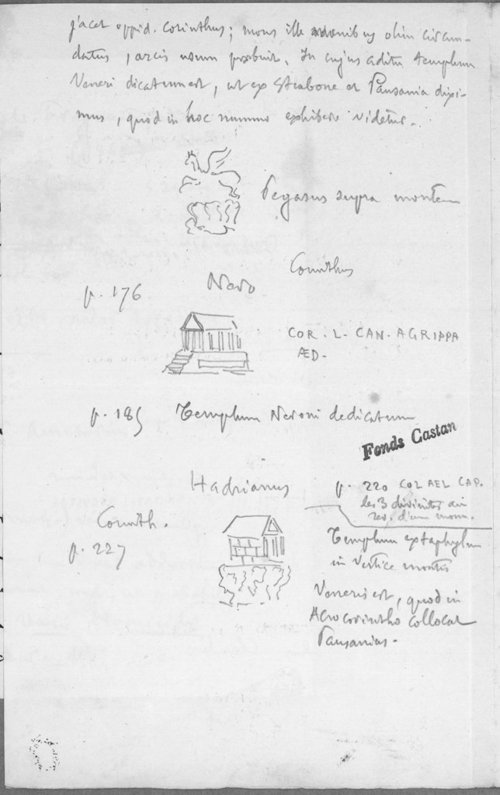 jacet oppid. Corinthus; mons ille moenibus olim circum-
datus, arcis usum praebuit. In cujus aditu templum
Veneri dicatum est, ut ex Strabone et Pausania dixi-
mus, quod in hoc nummo exhiberi videtur.
Pegasus supra montem
Corinthus
Nero
p. 176
COR. L. CAN. AGRIPPA
ÆD.
p. 185 Templum Neroni dedicatum
Fonds Castan
Hadrianus
p. 220 COL AEL CAP.
les 3 divinités au
rev. d'une monn.
Corinth.
p. 227
Templum
in vertice montis
Veneris est, quod in
Acrocorintho collocat
Pausanias.